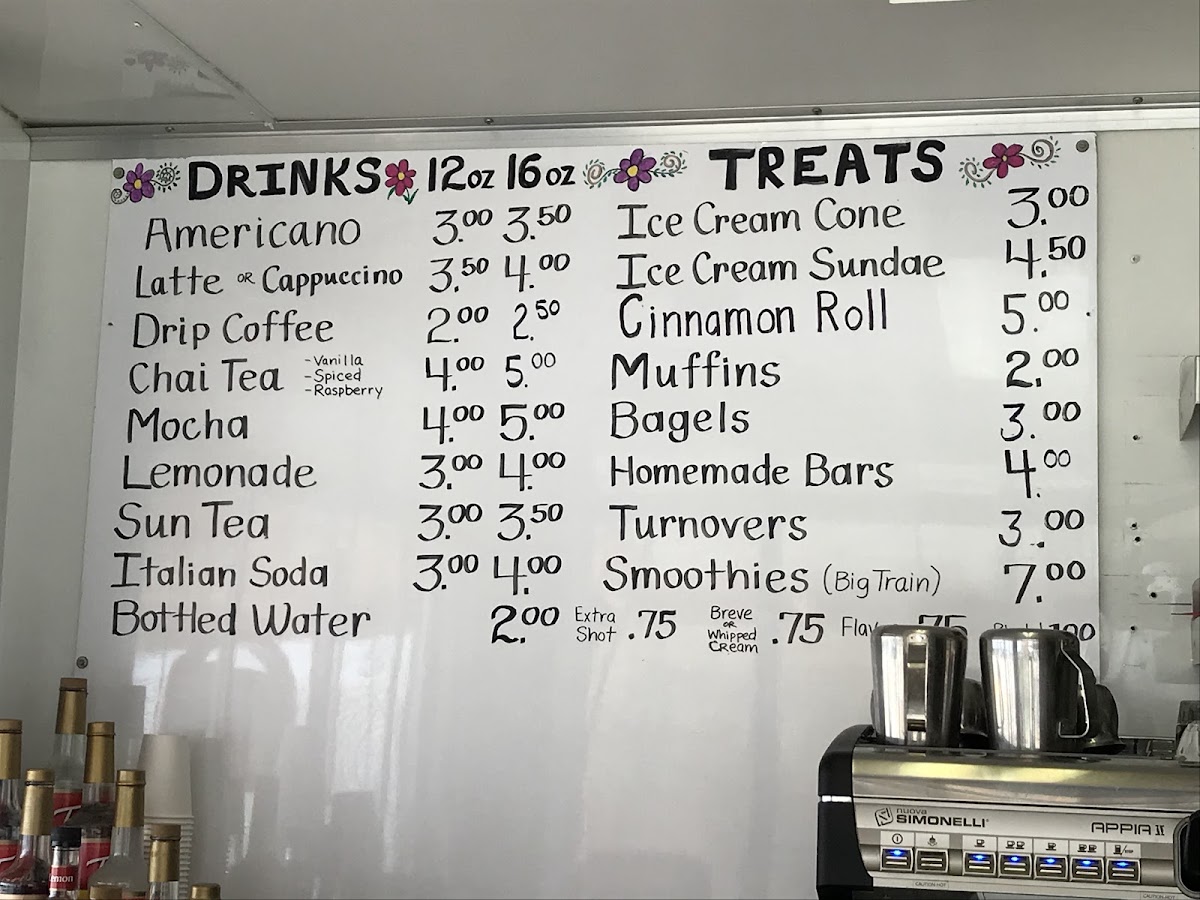 DRINKS 12oz 16oz
Americano 3.00 3.50
Latte OR Cappuccino 3.50 4.00
Drip Coffee 2.00 2.50
Chai Tea 4.00 5.00
-Vanilla
-Spiced
-Raspberry
Mocha 4.00 5.00
Lemonade 3.00 4.00
Sun Tea 3.00 3.50
Italian Soda 3.00 4.00
Bottled Water 2.00
TREATS
Ice Cream Cone 3.00
Ice Cream Sundae 4.50
Cinnamon Roll 5.00
Muffins 2.00
Bagels 3.00
Homemade Bars 4.00
Turnovers 3.00
Smoothies (Big Train) 7.00
Extra
Shot .75
Breve
OR
Whipped
Cream .75
nuova
SIMONELLI
APPIA II